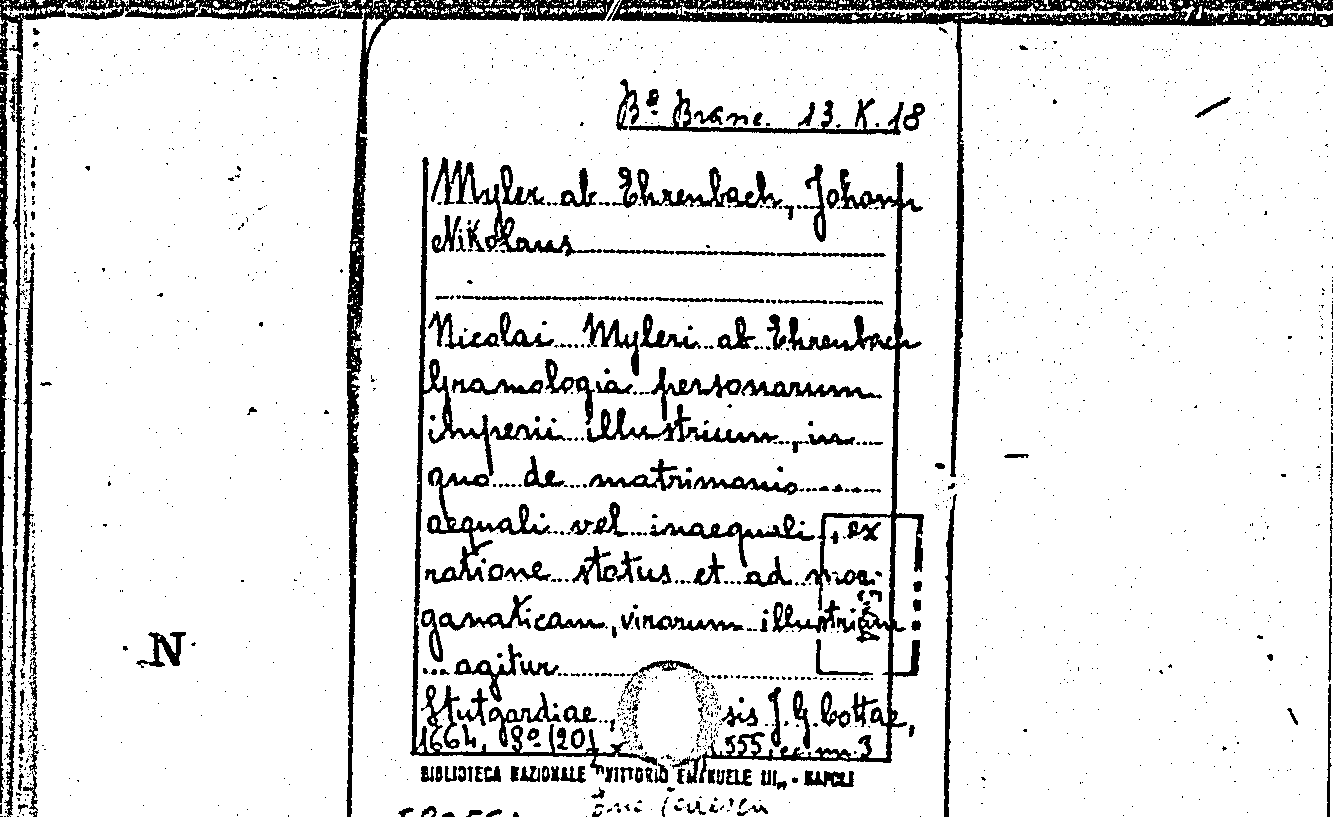 Bª Branc. 13. K. 18
Myler ab Ehrenbach, Johann
Nikolaus
Nicolai Myleri ab Ehrenbach
Gramologia personarum
imperii illustrium, in
quo de matrimonio
aequali vel inaequali, ex
ratione status et ad mor-
ganaticam, virorum illustrium
... agitur
N
Stutgardiae, sis J. G. Cottae,
1664, 8º (20), 555, cc. nn. 3
BIBLIOTECA NAZIONALE "VITTORIO EMANUELE III„ - NAPOLI